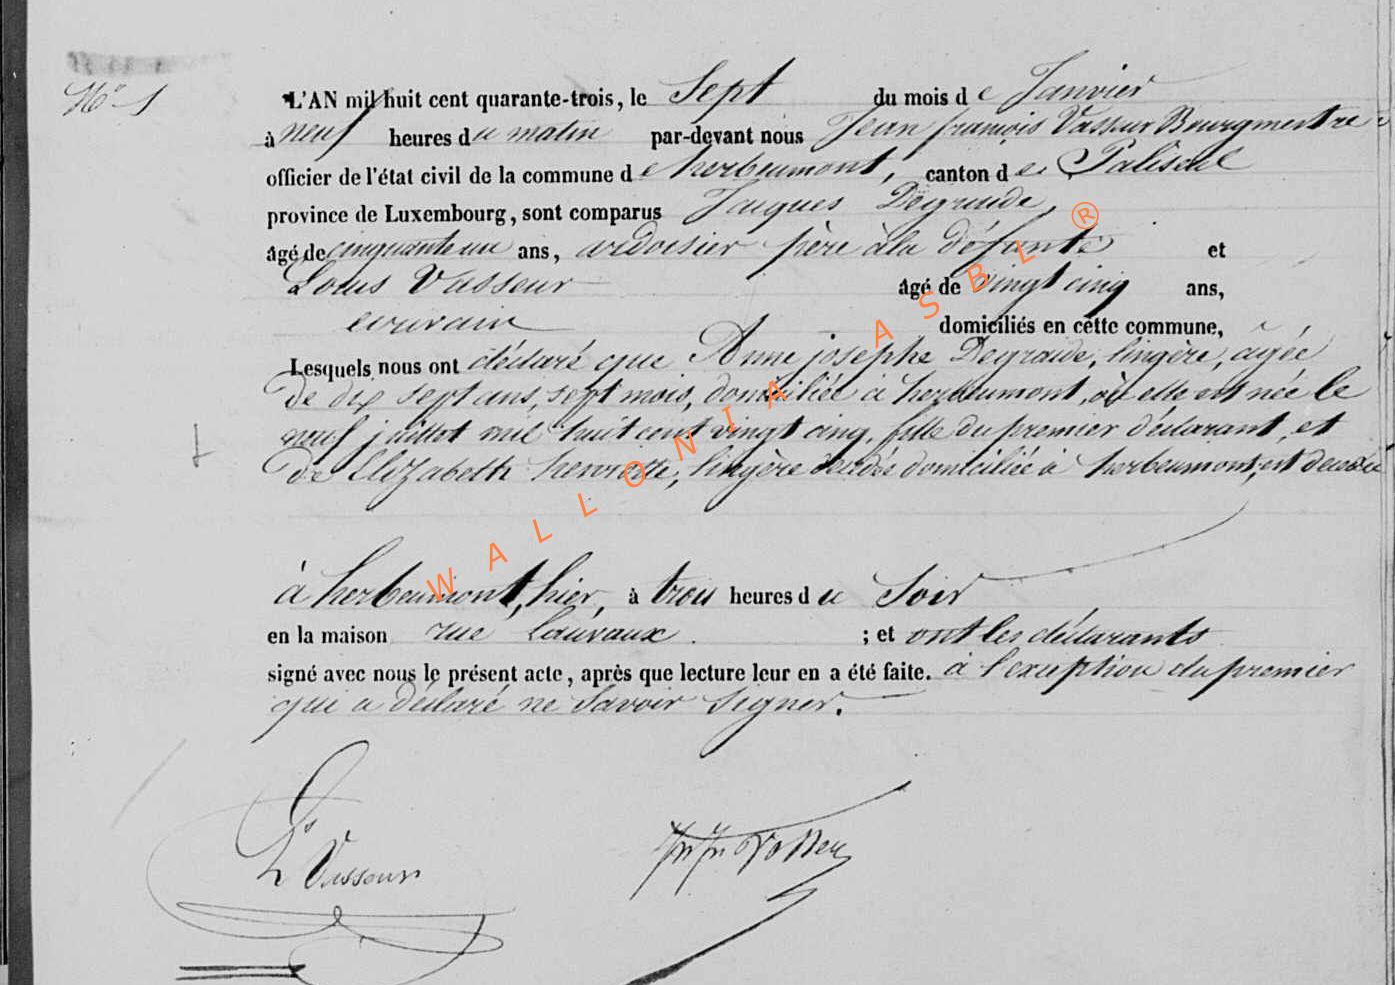 N° 1
L'AN mil huit cent quarante-trois, le Sept du mois de Janvier
à neuf heures du matin par-devant nous Jean françois Vasseur Bourgmestre
officier de l'état civil de la commune de herbeumont, canton de Paliseul
province de Luxembourg, sont comparus Jacques Degraide,
âgé de cinquante un ans, ardoisier père à la défunte et
Louis Vasseur âgé de vingt cinq ans,
écrivain domiciliés en cette commune,
Lesquels nous ont déclaré que Anne josephe Degraide, lingère, agée
de dix sept ans, sept mois, domiciliée à herbeumont, où elle est née le
neuf juillet mil huit cent vingt cinq, fille du premier déclarant, et
de Elizabeth henrotte, lingère domiciliée à herbeumont, est décédée
à herbeumont, hier, à trois heures du Soir
en la maison rue Lauvaux. ; et ont les déclarants
signé avec nous le présent acte, après que lecture leur en a été faite. à l'exception du premier
qui a déclaré ne Savoir Signer.
Ls Vasseur
WALLONIA ASBL ®